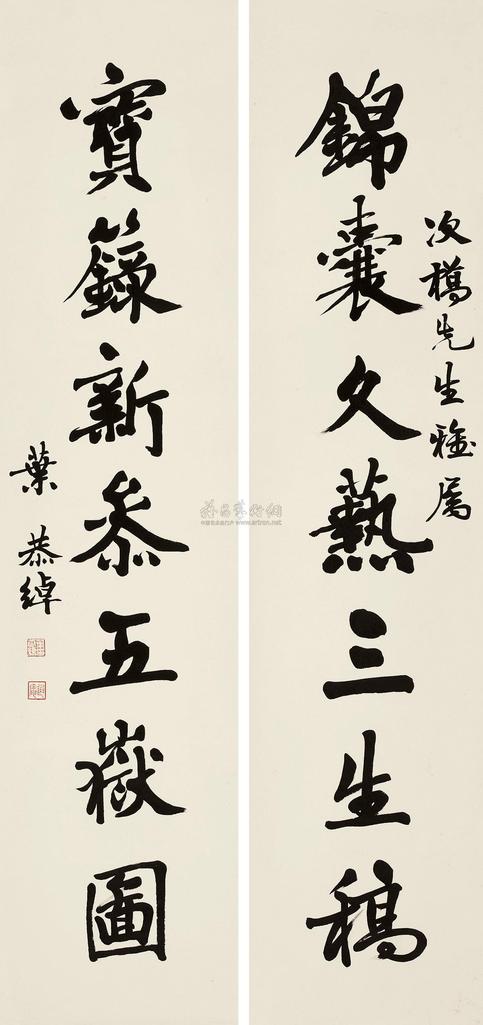 錦囊久爇三生稿
次橋先生雅屬
寶籙新參五嶽圖
葉恭綽
雅昌藝術網
www.artron.net